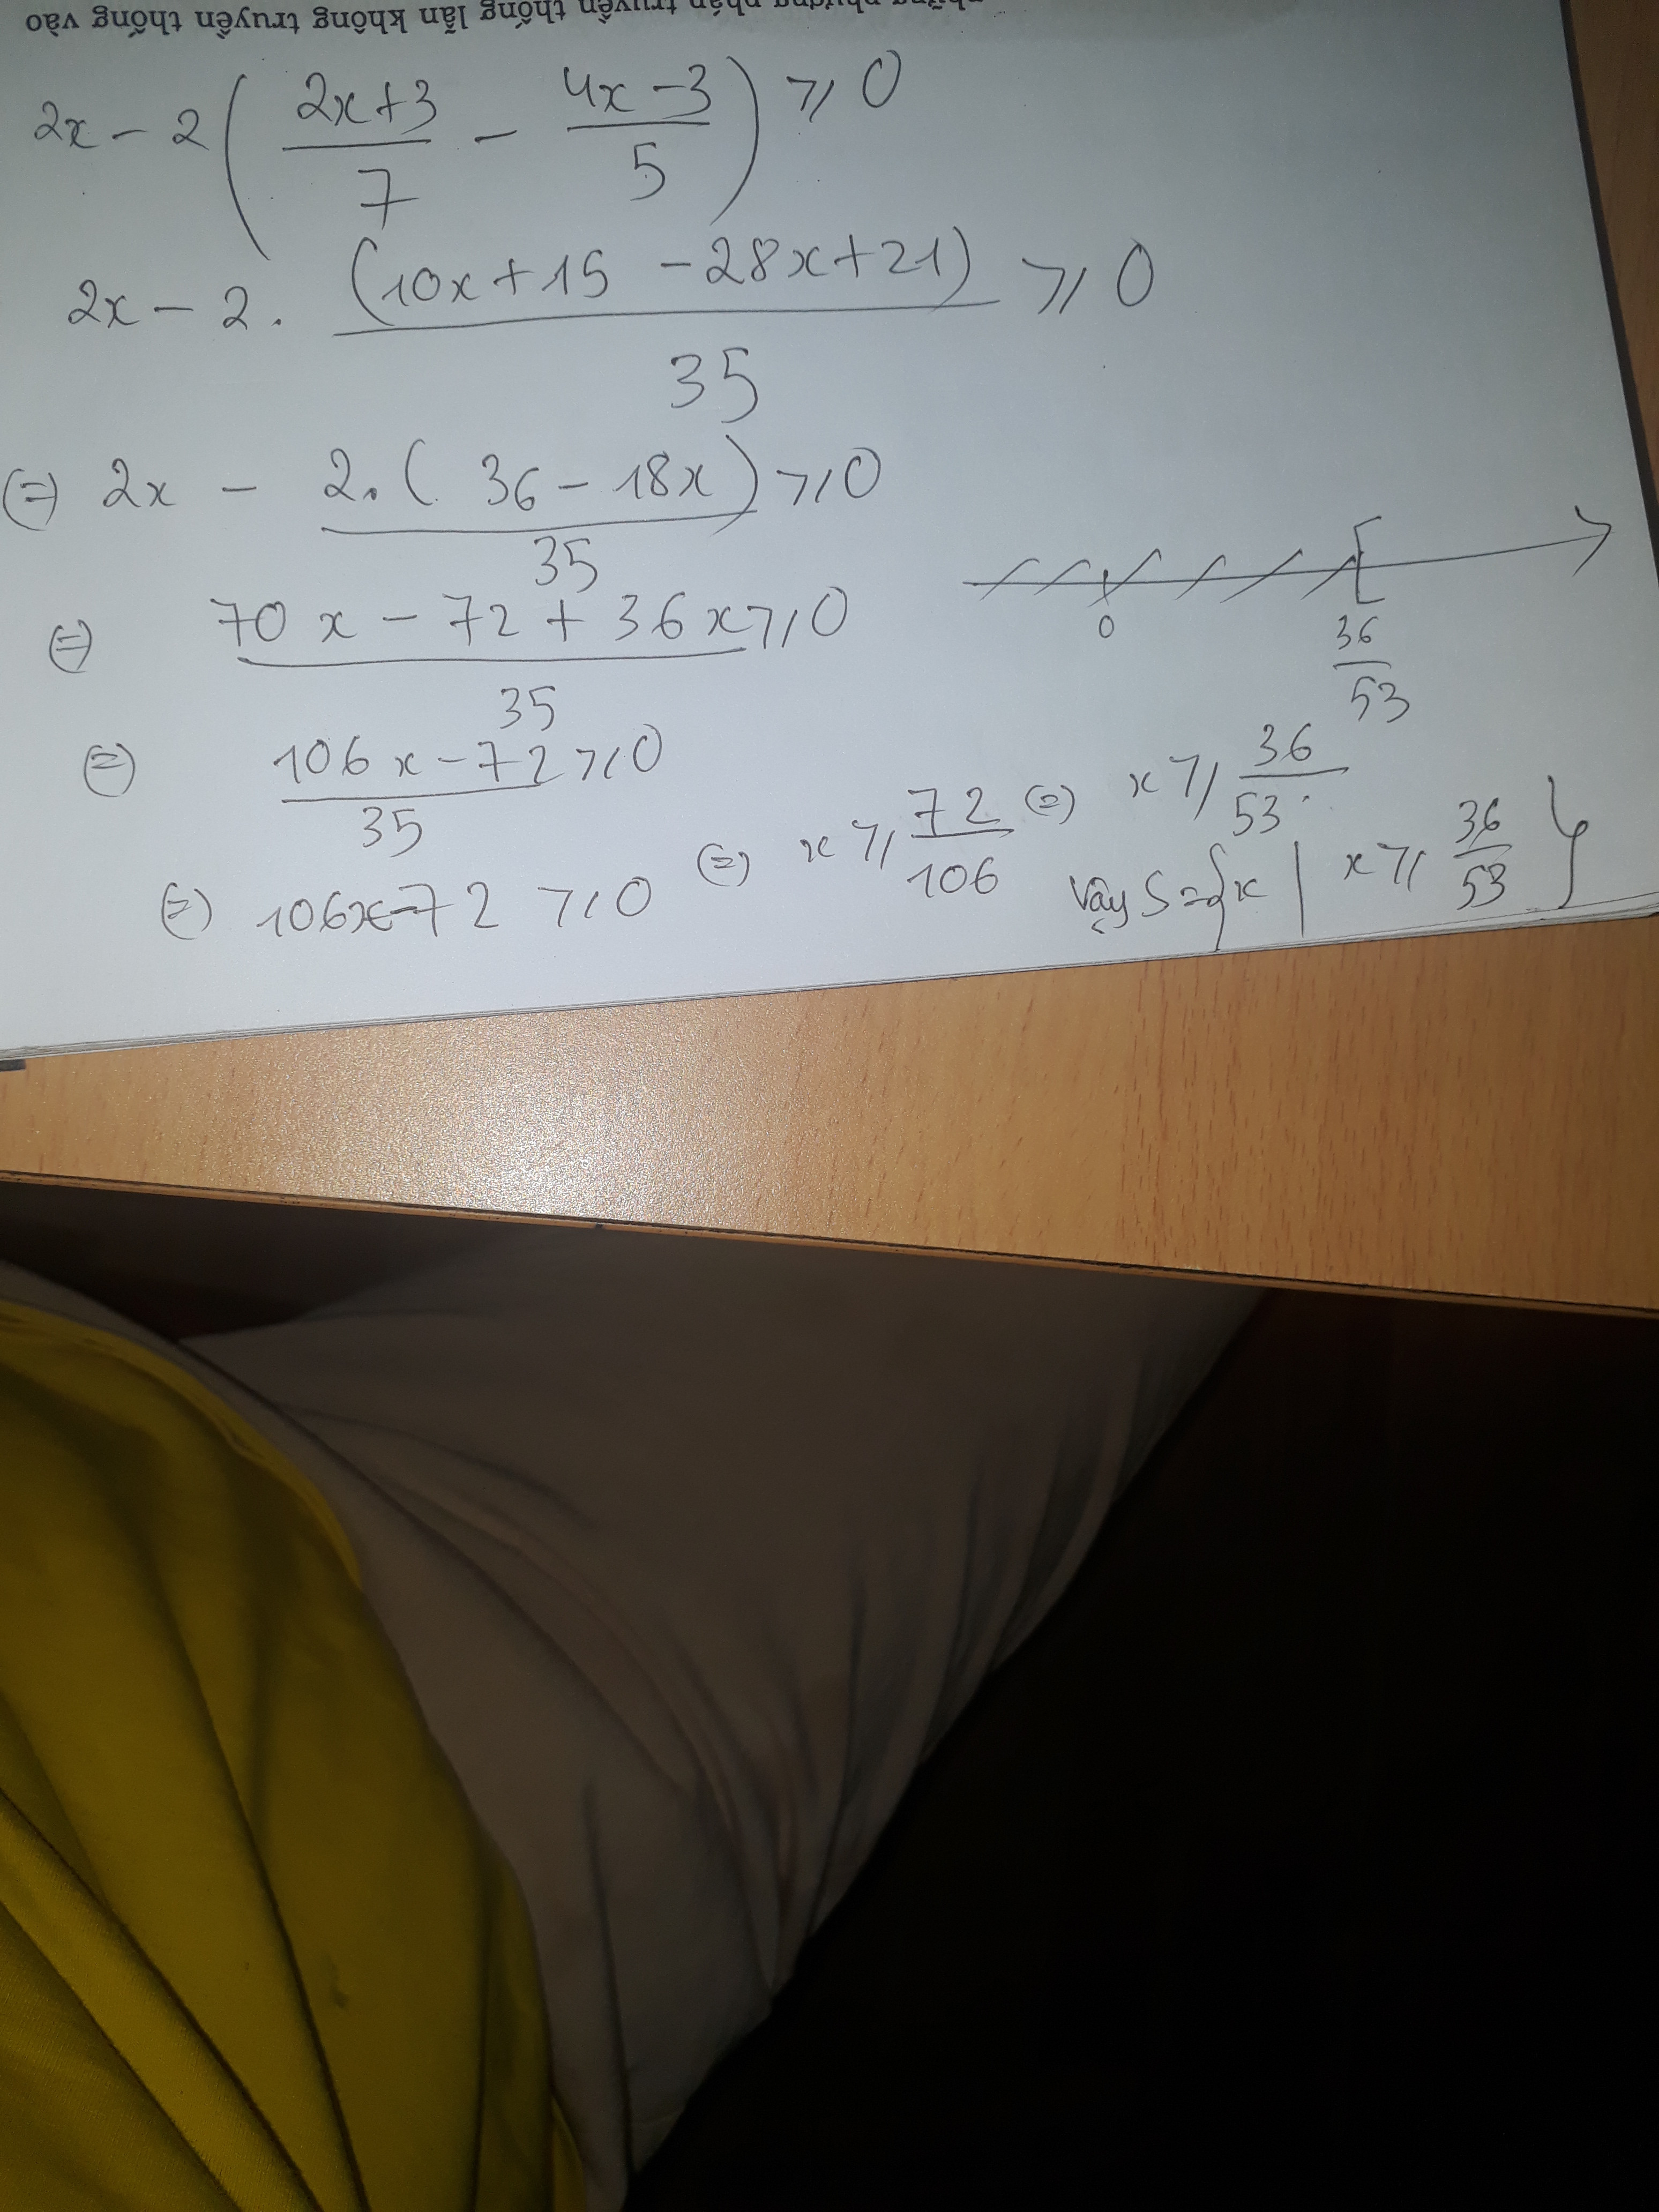 truyền thống lẫn không truyền thống vào
2x - 2 ( (2x+3)/7 - (4x-3)/5 ) ⩾ 0
2x - 2. (10x+15 -28x+21)/35 ⩾ 0
(=) 2x - 2.(36-18x)/35 ⩾ 0
(=) (70x - 72 + 36x)/35 ⩾ 0
0 36/53
(=) (106x-72)/35 ⩾ 0
(=) 106x-72 ⩾ 0 (=) x ⩾ 72/106 (=) x ⩾ 36/53
Vậy S={x | x ⩾ 36/53}